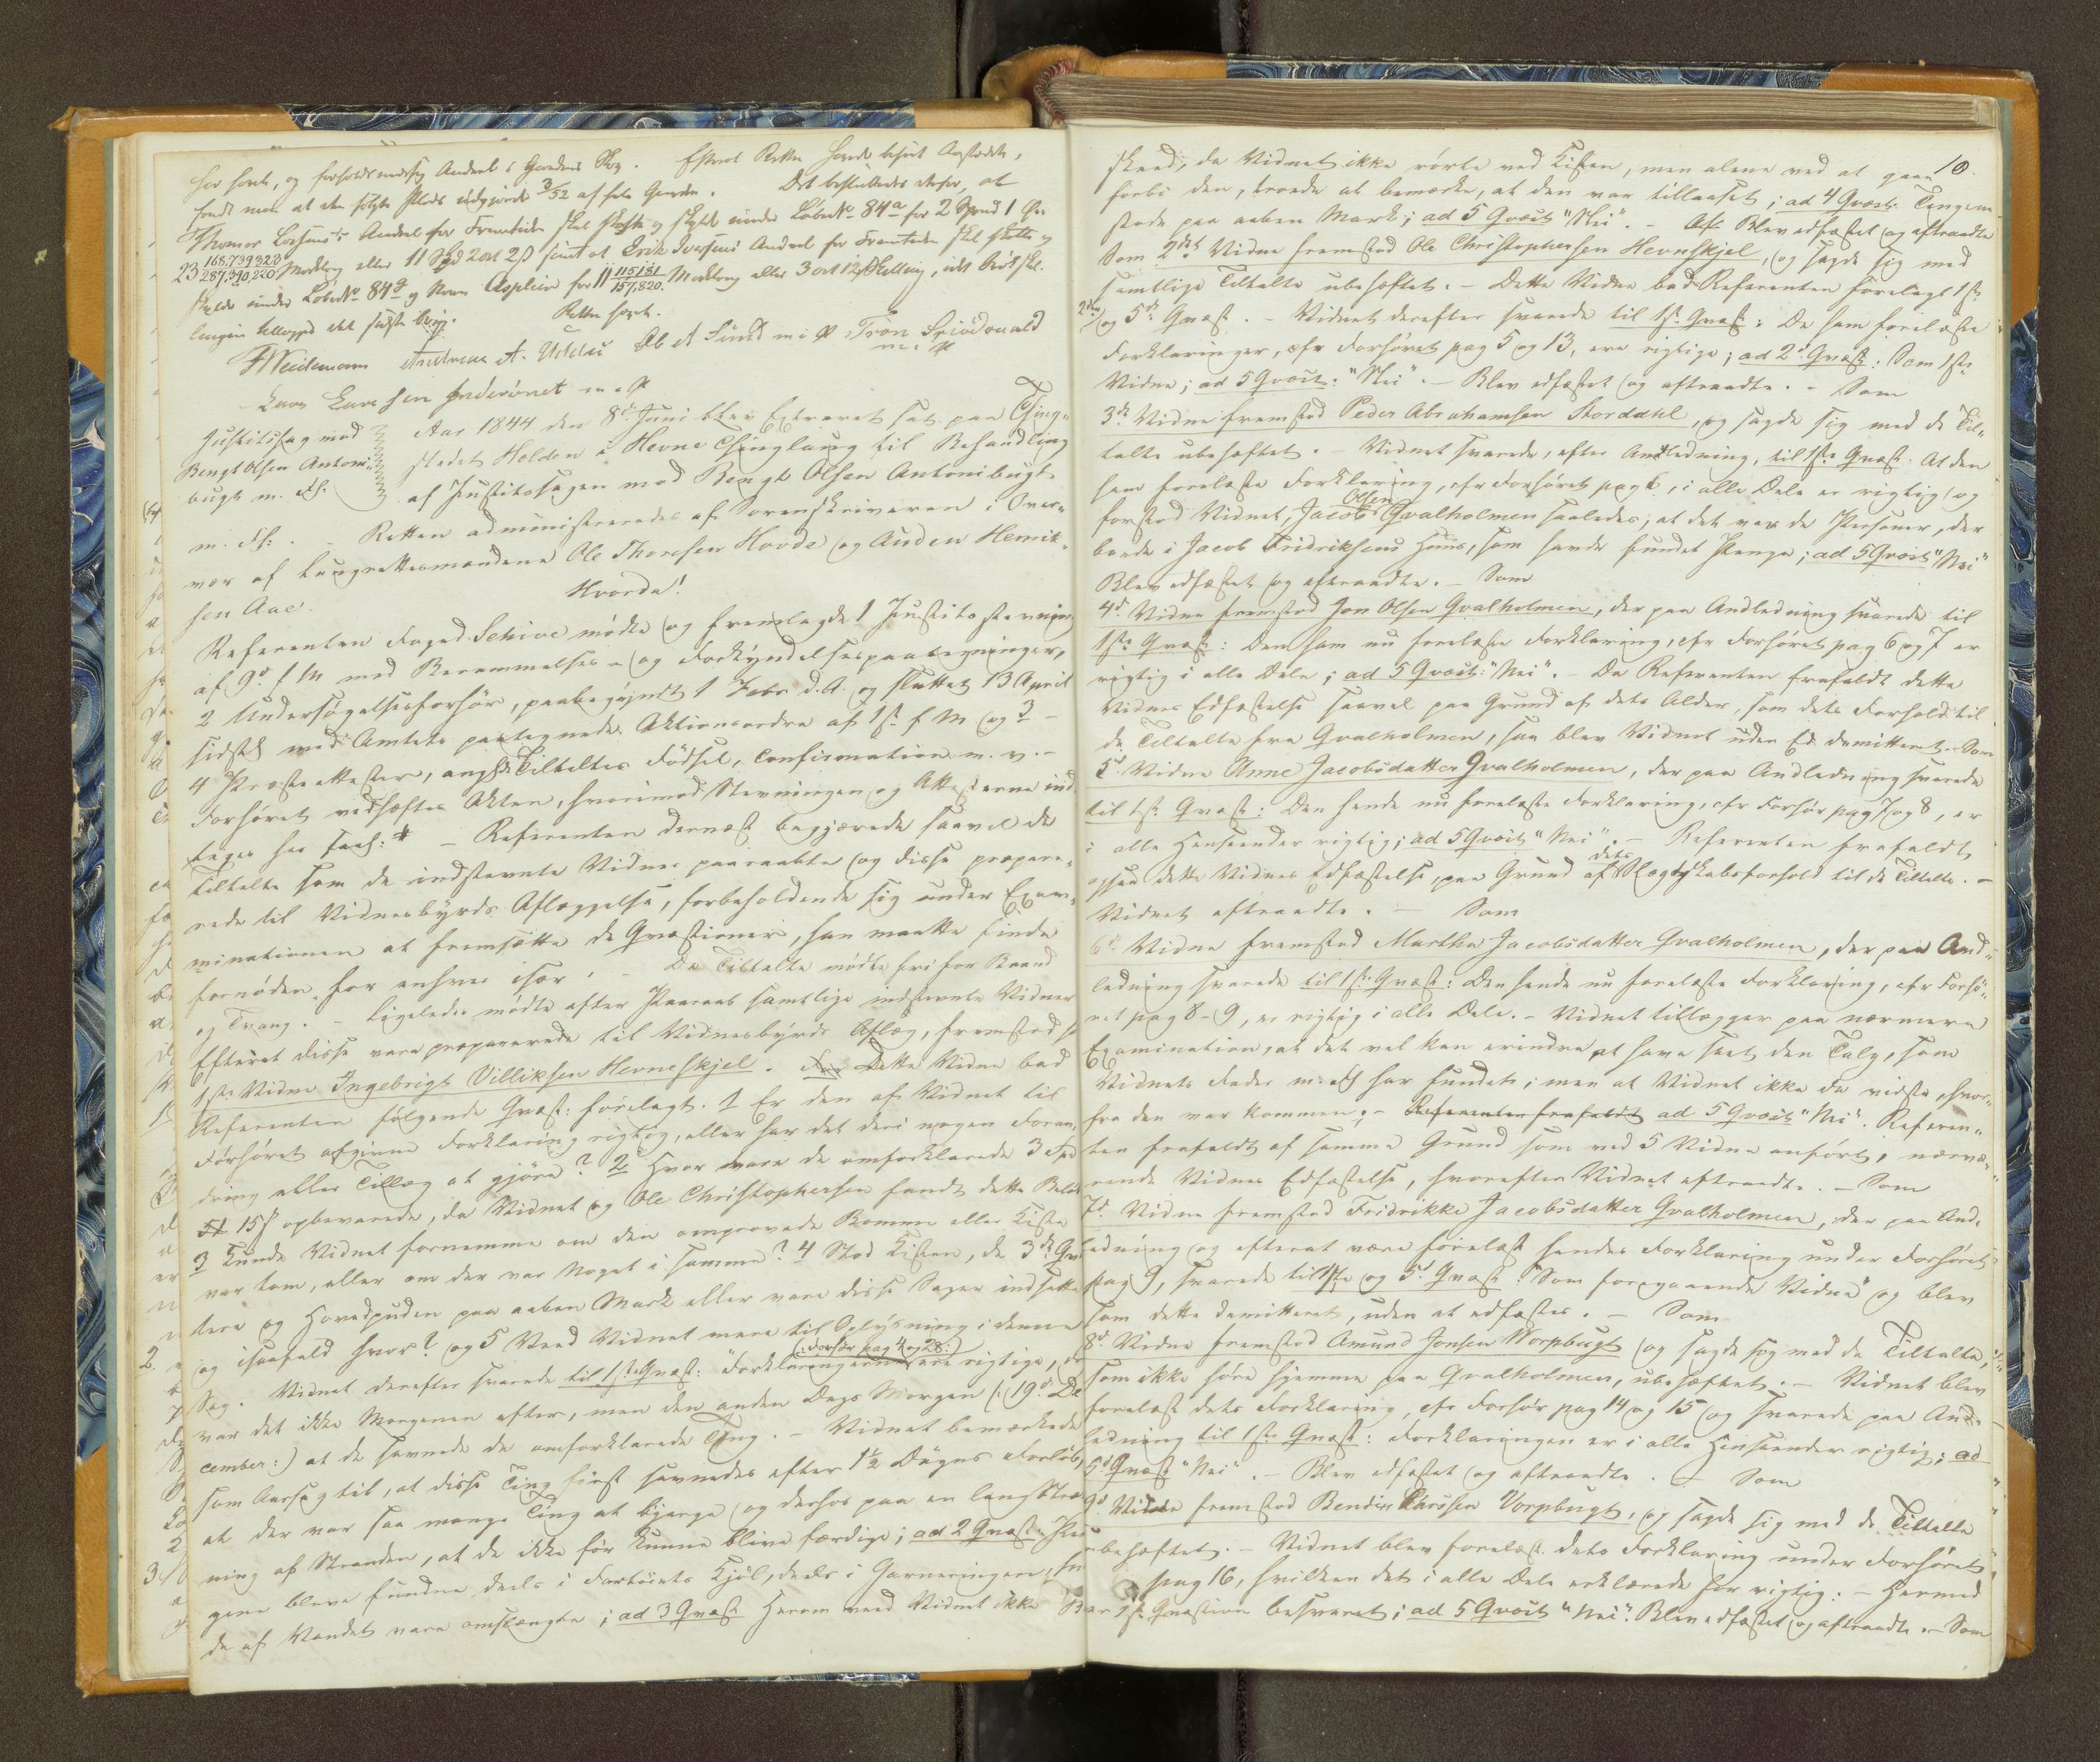 for sorte, og forholdsmæssig Andeel i Gaardens Skov. Efterat Retten havde besigt Aastedet,
fandt man at den solgte Plads udgjorde 3/32 af hele Gaarden. Det besluttedes derfor, at
Thomas Larsens Andeel for Fremtiden skal skatte og skylde under Løbe No 84a for 2 Spand 1 Øre
23 168,739,323/287,390,220 Marklag eller 11 Spd 2 ort 2 β samt at Erik Iversens Andeel for Fremtiden skal skatte og
skylde under Løbe No 84 og Navn Aspleien for 11 115,181/157,820 Marklag eller 3 ort 12 Skilling, idet
Retten hævet.
Weidemann Andreas A. Ole A Sund m i P Tron
m. i. P
Lars Larssen Inderönet m. i. P
Justitssag mod
Bengt Olsen Antoni-
bugt m. fl.
Aar 1844 den 8de Juni blev Extraret sat paa Thing-
stedet Holden i Hevne Thinglaug til Behandling
af Justitssagen mod Bengt Olsen Antonibugt
m. fl. . – Retten administreredes af Sorenskriveren i Over-
vær af Laugrettesmændene Ole Thoresen Hovde og Auden Henrik-
sen Aae. Hvorda!
Referenten Foged Schive mødte og fremlagde 1 Justitsstevning
af 9de f. M. med Berammelses- og Forkyndelsespaategninger,
2 Undersøgelsesforhør, paabegyndt 1 Febr d. A. og sluttet 13 April
sidstl. med Amtets paategnede Aktionsordre af 1ste f. M. og 3 –
4 Præsteattester, angl. de Tiltaltes Fødsel, Confirmation m. v. –
Forhøret vedhæftes Akten, hvorimod Stevningen og Attesterne ind-
tages her saal: # – Referenten dernæst begjærede saavel de
Tiltalte som de indstevnte Vidner paaraabte og disse præpare-
rede til Vidnesbyrds Aflæggelse, forbeholdende sig under Exa-
minationen at fremsætte de Qvæstioner, han maatte finde
fornøden for enhver især. – De Tiltalte mødte fri for Baand
og Tvang. – Ligeledes mødte efter Paaraab samtlige indstevnte Vidner
Efterat disse vare præparerede til Vidnesbyrds Aflæg, fremstod
1ste Vidne Ingebrigt Villiksen Hevneskjel. Dette Vidne bad
Referenten følgende Qvæst: forelagt. 1 Er den af Vidnet til
Forhøret afgivne Forklaring rigtig, eller har det deri nogen Foran-
dring eller Tillæg at gjøre? 2 Hvor vare de omforklarede 3 Spd
15 β opbevarede, da Vidnet og Ole Christophersen fandt dette Beløb
3 Kunde Vidnet fornemme om den omprovede Bomme eller Kiste
var tom, eller om der var Noget i samme? 4 Stod Kisten, de 3de
tere og Hovedpuden paa aaben Mark eller vare disse Sager indsatte
og isaafald hvor? og 5 Veed Vidnet mere til Oplysning i denne
Sag. Vidnet derefter svarede til 1ste Qvæst: Forklaringerne (: Forhør pag 4 og 28 :) ere rigtige,
var det ikke Morgenen efter, men den anden Dags Morgen (: 19de De-
cember :) at de savnede de omforklarede Ting. – Vidnet bemærkede
som Aarsag til, at disse Ting først savnedes efter 1½ Døgns Forløb,
at der var saa mange Ting at bjerge og derhos paa en lang
ning af Stranden, at de ikke før kunne blive færdige; ad 2 Qvæst:
gene bleve fundne deels i Fartøiets Kjøl, deels i Garneringen,
de af Vandet vare omslængte; ad 3 Qvæst: Herom veed Vidnet ikke
10
skeed, da Vidnet ikke rørte ved Kisten, men alene ved at gaae
forbi den, troede at bemærke, at den var tillaaset; ad 4 Qvæst: Tingene
stode paa aaben Mark; ad 5 Qvæst: "Nei". – Blev edfæstet og aftraadte
Som 2det Vidne fremstod Ole Christophersen Hevneskjel, og sagde sig med
samtlige Tiltalte ubehæftet. – Dette Vidne bad Referenten forelagt 1ste
2den og 5te Qvæst. – Vidnet derefter svarede til 1ste Qvæst: De ham forelæste
Forklaringer, cfr Forhøret pag 5 og 13, ere rigtige; ad 2de Qvæst: Som 1ste
Vidne; ad 5 Qvæst: "Nei". – Blev edfæstet og aftraadte. – Som
3de Vidne fremstod Peder Abrahamsen Stordahl, og sagde sig med de Til-
talte ubehæftet. – Vidnet svarede, efter Andledning, til 1ste Qvæst. At den
ham forelæste Forklaring, cfr Forhøret pag 6, i alle Dele er rigtig og
forstod Vidnet, Jacob Olsen Qvalholmen saaledes, at det var de Personer, der
boede i Jacob Fridriksens Huus, som havde fundet Penge; ad 5 Qvæst: "Nei"
Blev edfæstet og aftraadte. – Som
4de Vidne fremstod Jon Olsen Qvalholmen, der paa Andledning svarede til
1ste Qvæst: Den ham nu forelæste Forklaring, cfr Forhøret pag 6 og 7 er
rigtig i alle Dele; ad 5 Qvæst: "Nei". – Da Referenten frafaldt dette
Vidnes Edfæstelse saavel paa Grund af dets Alder, som dets Forhold til
de Tiltalte fra Qvalholmen, saa blev Vidnet uden Ed demitteret. Som
5te Vidne Anne Jacobsdatter Qvalholmen, der paa Andledning svarede
til 1ste Qvæst: Den hende nu forelæste Forklaring, cfr Forhør pag 7 og 8, er
i alle Henseender rigtig; ad 5 Qvæst "Nei". – Referenten frafaldt
ogsaa dette Vidnes Edfæstelse, paa Grund af dets Slægtskabsforhold til de Tiltalte. –
Vidnet aftraadte. – Som
6te Vidne fremstod Martha Jacobsdatter Qvalholmen, der paa And-
ledning svarede til 1ste Qvæst: Den hende nu forelæste Forklaring, cfr Forhø-
ret pag 8-9, er rigtig i alle Dele. – Vidnet tillægger paa nærmere
Examination, at det vel kan erindre at have seet den Talg, som
Vidnets Fader m. fl. har fundet; men at Vidnet ikke da vidste, hvor-
fra den var kommen; – Referenten frafaldt ad 5 Qvæst "Nei". Referen-
ten frafaldt af samme Grund som ved 5 Vidne anført, nærvæ-
rende Vidnes Edfæstelse, hvorefter Vidnet aftraadte. – Som
7de Vidne fremstod Fridrikke Jacobsdatter Qvalholmen, der paa And-
ledning og efterat være forelæst hendes Forklaring under Forhøret
pag 9, svarede til 1ste og 5te Qvæst: "Som foregaaende Vidne" og blev
som dette demitteret, uden at edfæstes. – Som
8de Vidne fremstod Amund Jonsen Worpbugt og sagde sig med de Tiltalte,
som ikke høre hjemme paa Qvalholmen, ubehæftet. – Vidnet blev
forelæst dets Forklaring, cfr Forhør pag 14 og 15 og svarede paa And-
ledning til 1ste Qvæst: Forklaringen er i alle Henseender rigtig; ad
5te Qvæst "Nei". – Blev edfæstet og aftraadte. – Som
9de Vidne fremstod Bendix Larssen Vorpbugt, og sagde sig med de Tiltalte
ubehæftet. – Vidnet blev forelæst dets Forklaring under Forhøret
pag 16, hvilken det i alle Dele erklærede for rigtig. – Hermed
var 1ste Qvæstion besvaret; ad 5 Qvæst "Nei". Blev edfæstet og aftraadte. – Som